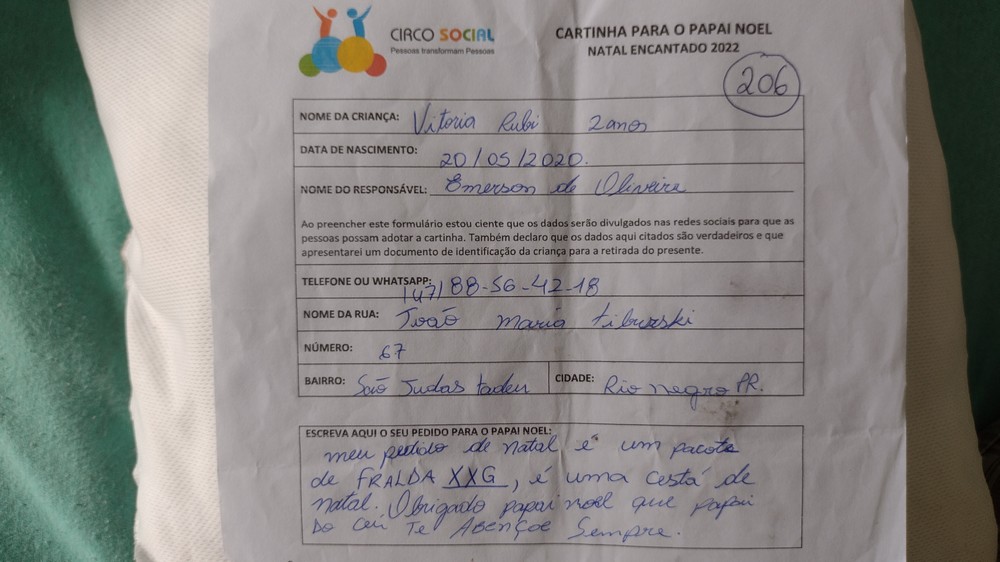 CIRCO SOCIAL
Pessoas transformam Pessoas
CARTINHA PARA O PAPAI NOEL
NATAL ENCANTADO 2022
206
NOME DA CRIANÇA: Vitoria Rubi 2 anos
DATA DE NASCIMENTO: 20/05/2020.
NOME DO RESPONSÁVEL: Emerson de Oliveira
Ao preencher este formulário estou ciente que os dados serão divulgados nas redes sociais para que as
pessoas possam adotar a cartinha. Também declaro que os dados aqui citados são verdadeiros e que
apresentarei um documento de identificação da criança para a retirada do presente.
TELEFONE OU WHATSAPP: (47) 88-56-42-18
NOME DA RUA: João Maria Tiburski
NÚMERO: 67
BAIRRO: São Judas tadeu CIDADE: Rio negro PR.
ESCREVA AQUI O SEU PEDIDO PARA O PAPAI NOEL:
meu pedido de natal é um pacote
de FRALDA XXG, é uma cestá de
natal. Obrigado papai noel que papai
Do Céu Te Abençoe Sempre.